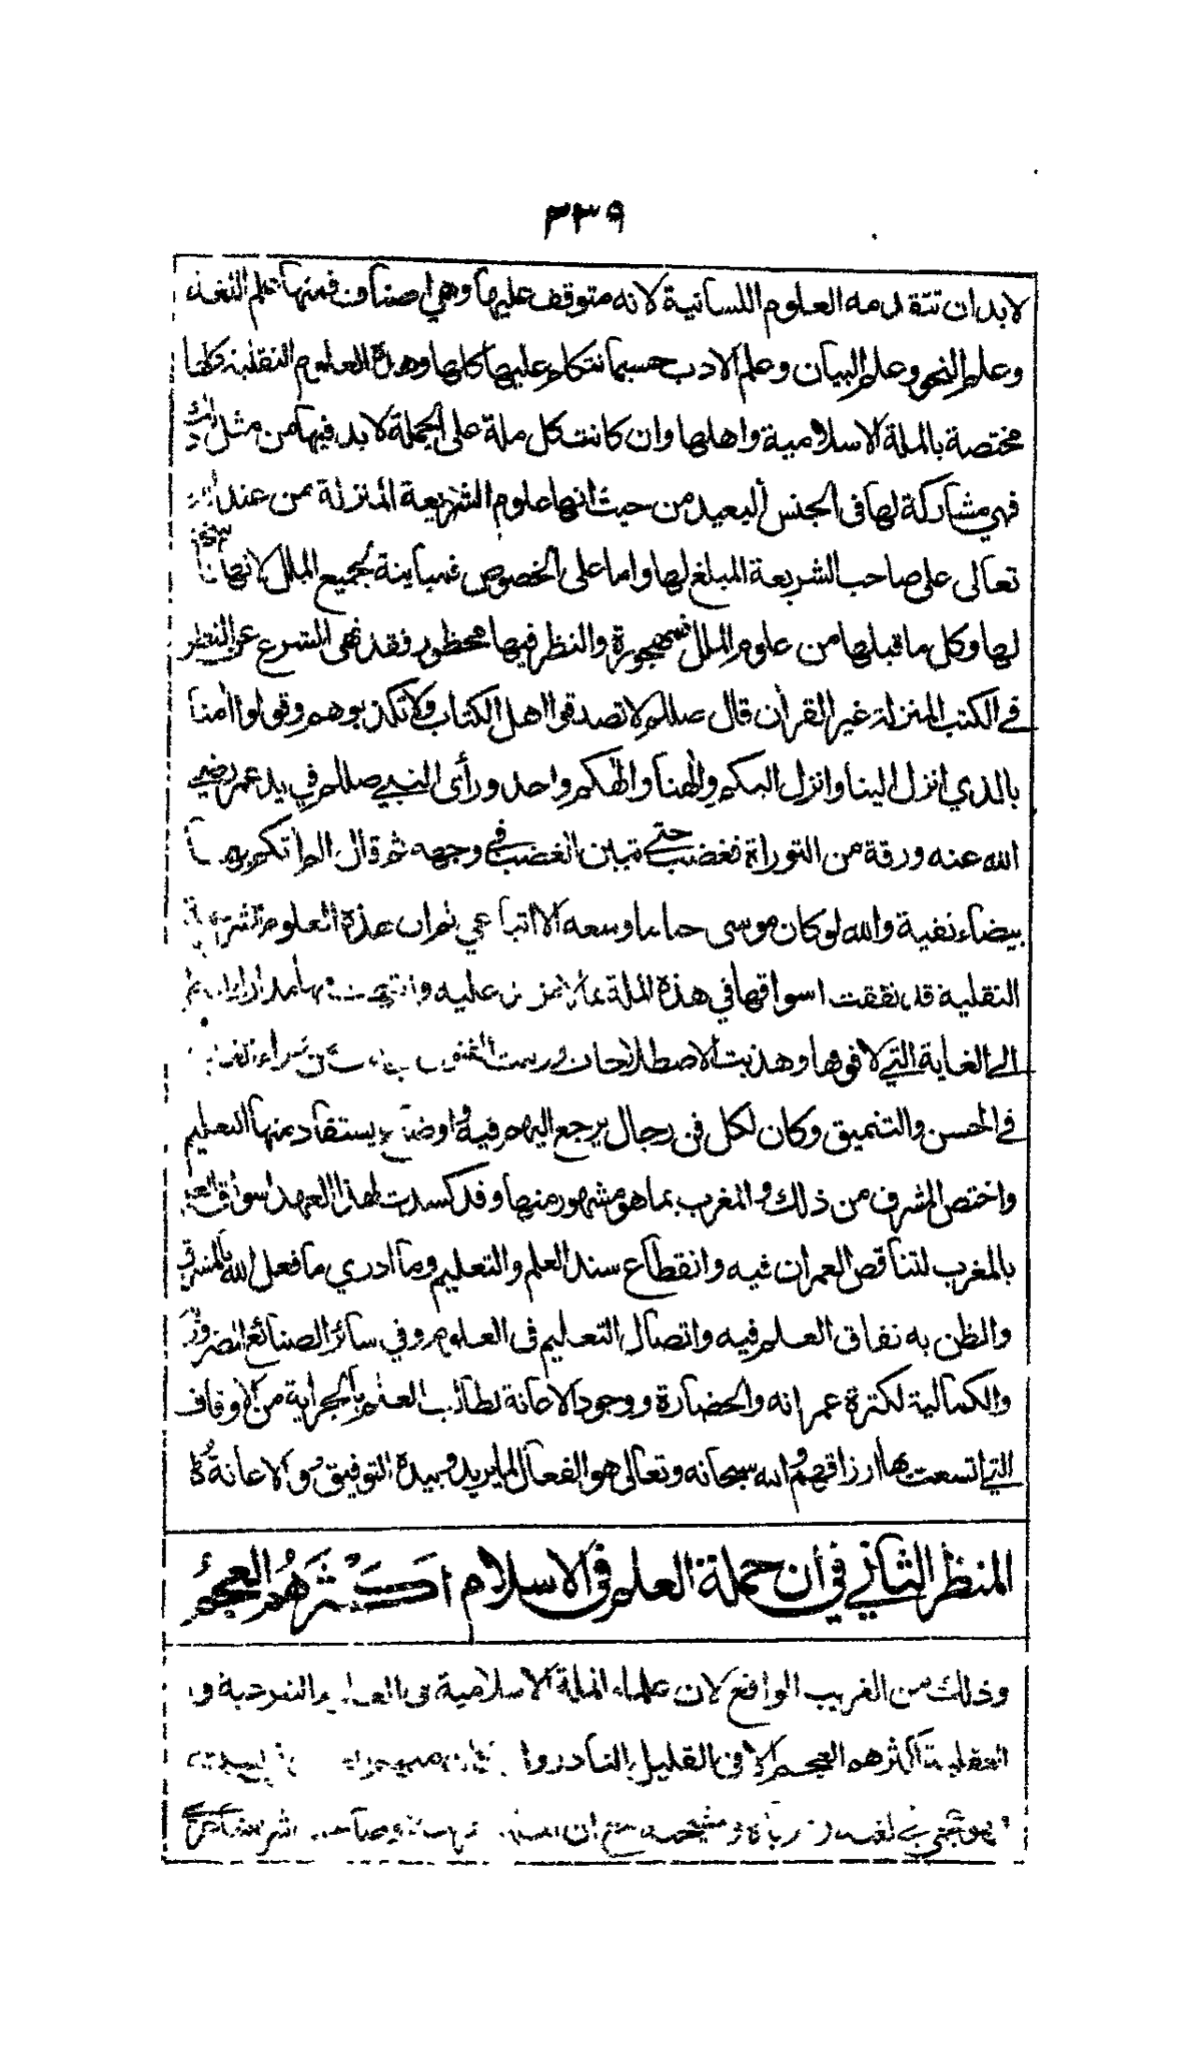 ٣٣٩
لا بد ان تتقدمه العلوم اللسانية لانه متوقف عليها وهي اصناف فمنها علم اللغة
وعلم النحو وعلم البيان وعلم الادب حسبما نتكلم عليها كلها وهذه العلوم النقلية كلها
مختصة بالملة الاسلامية واهلها وان كانت كل ملة على الجملة لا بد فيها من مثل ذلك
فهي مشاركة لها في الجنس البعيد من حيث انها علوم الشريعة المنزلة من عند الله
تعالى على صاحب الشريعة المبلغ لها واما على الخصوص فمباينة لجميع الملل لانها ناسخة
لها وكل ما قبلها من علوم الملل فمهجورة والنظر فيها محظور فقد نهى الشرع عن النظر
في الكتب المنزلة غير القرأن قال صللم لا تصدقوا اهل الكتاب ولا تكذبوهم وقولوا امنا
بالذي انزل الينا وانزل اليكم والهنا والهكم واحد ورأى النبي صللم في يد عمر رضي
الله عنه ورقة من التوراة فغضب حتى تبين الغضب في وجهه ثم قال الم اتكم بها
بيضاء نقية والله لو كان موسى حيا ما وسعه الا اتباعي ثم ان هذه العلوم الشرعية
النقلية قد نفقت اسواقها في هذه الملة بما لا مزيد عليه وانتهت
الى الغاية التي لا فوقها وهذبت الاصطلاحات ورتبت الفنون
في الحسن والتنميق وكان لكل فن رجال يرجع اليهم فيه واوضاع يستفاد منها التعليم
واختص المشرق من ذلك والمغرب بما هو مشهور منها وقد كسدت لهذا العهد اسواق العلم
بالمغرب لتناقص العمران فيه وانقطاع سند العلم والتعليم وما ادري ما فعل الله بالمشرق
والظن به نفاق العلم فيه واتصال التعليم في العلوم وفي سائر الصنائع الضرورية
والكمالية لكثرة عمرانه والحضارة ووجود الاعانة لطالب العلم بالجراية من الاوقاف
التي اتسعت بها ارزاقهم والله سبحانه وتعالى هو الفعال لما يريد وبيده التوفيق والاعانة
المنظر الثاني في ان حملة العلم في الاسلام اكثرهم العجم
وذلك من الغريب الواقع لان علماء الملة الاسلامية في العلوم الشرعية و
العقلية اكثرهم العجم الا في القليل النادر وان